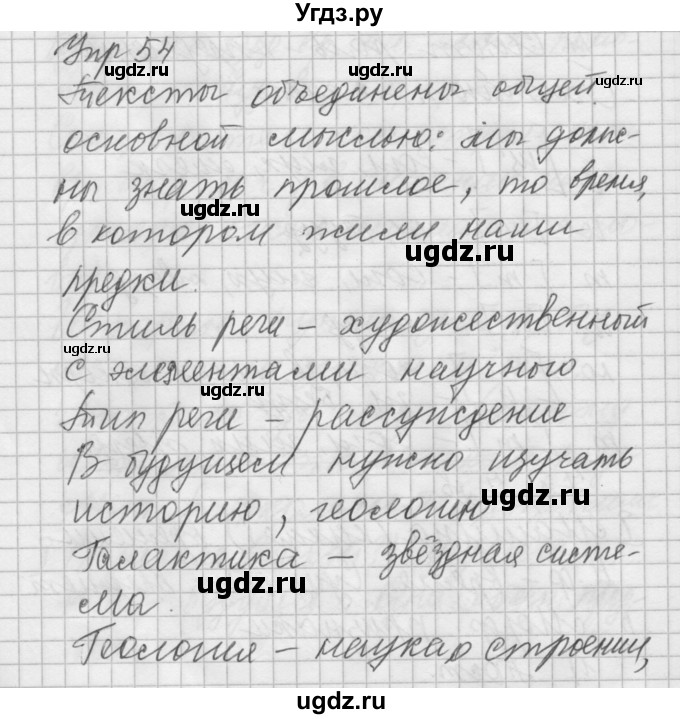 Угдз.ру
Упр 54
ugdz.ru
ugdz.ru
ugdz.ru
Тексты объединены общей
основной мыслью: мы долж-
ны знать прошлое, то время,
ugdz.ru
в котором жили наши
ugdz.ru
предки.
Стиль речи – художественный
ugdz.ru
с элементами научного
ugdz.ru
Тип речи – рассуждение
В будущем нужно изучать
ugdz.ru
историю, геологию
Галактика – звёздная систе-
ugdz.ru
ма.
Геология – наука о строении,
ugdz.ru